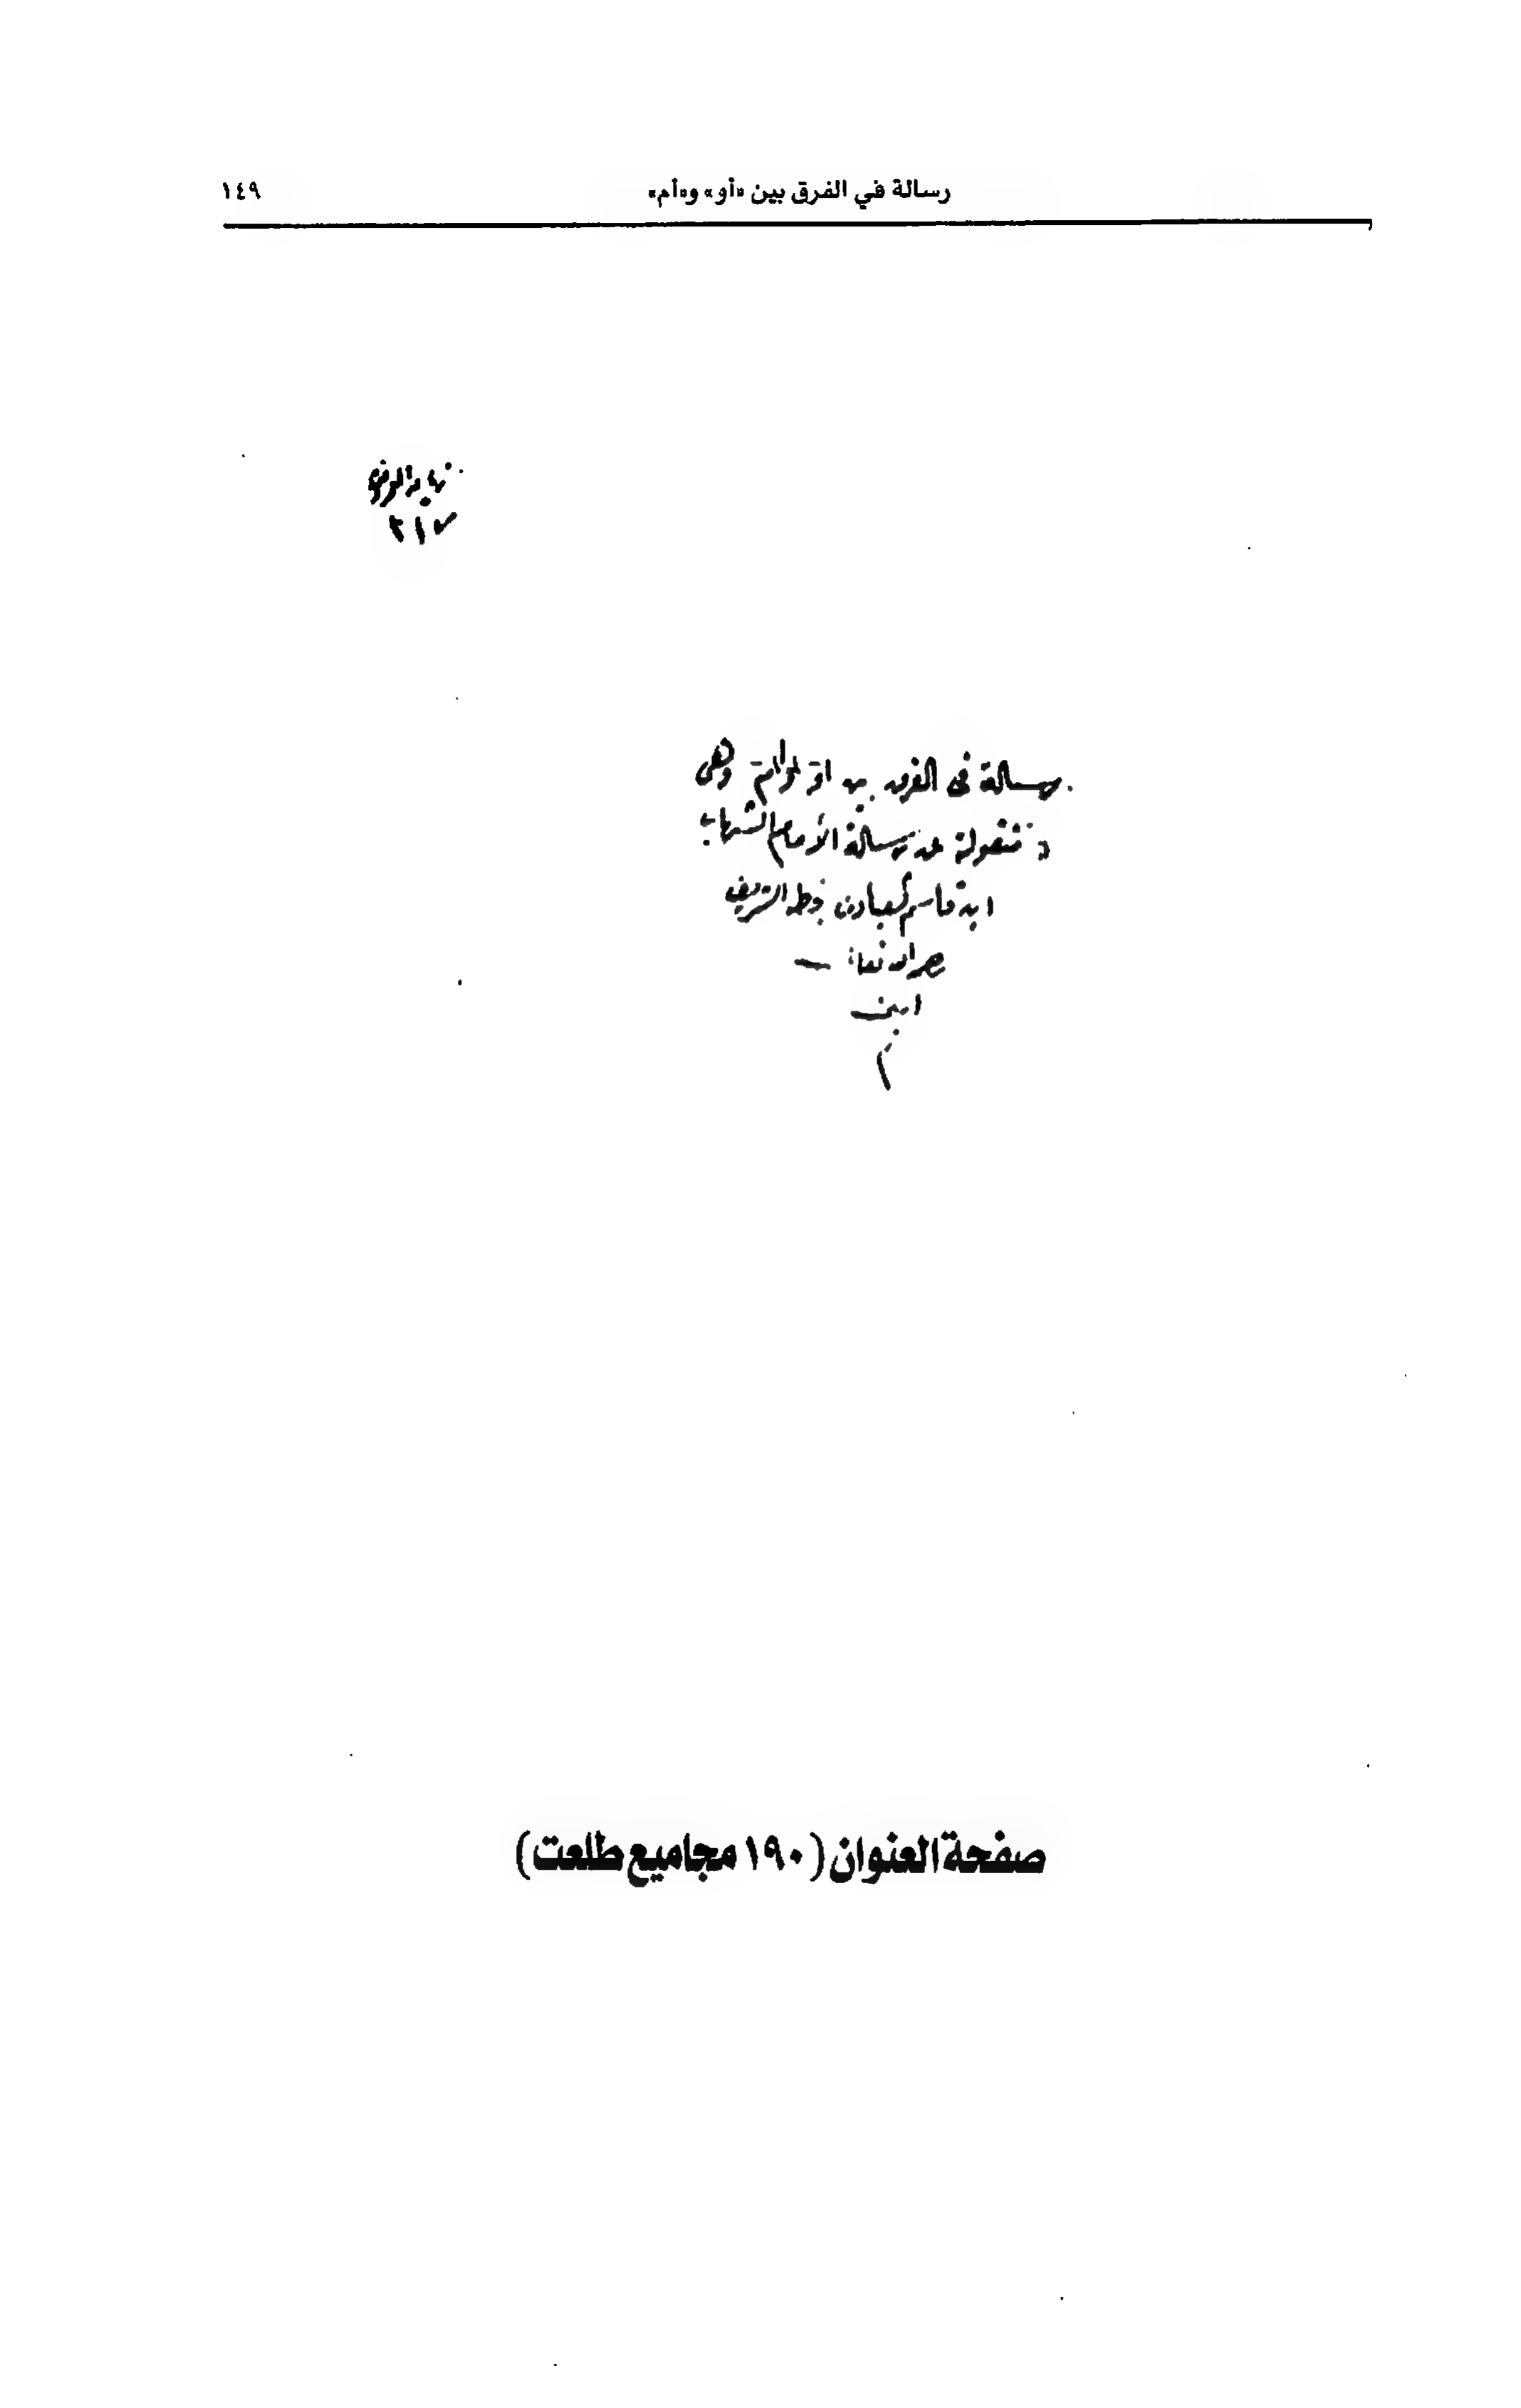 رسالة في الفرق بين «أو» و«أم»
١٤٩
٢١٧
رسالة فى الفرق بين او وام وهى
منقولة من رسالة الأمام الشهاب
ابن قاسم العبادى بخطه الشريف
رحمه الله تعالى
امين
م
صفحة العنوان (١٩٠ مجاميع طلعت)